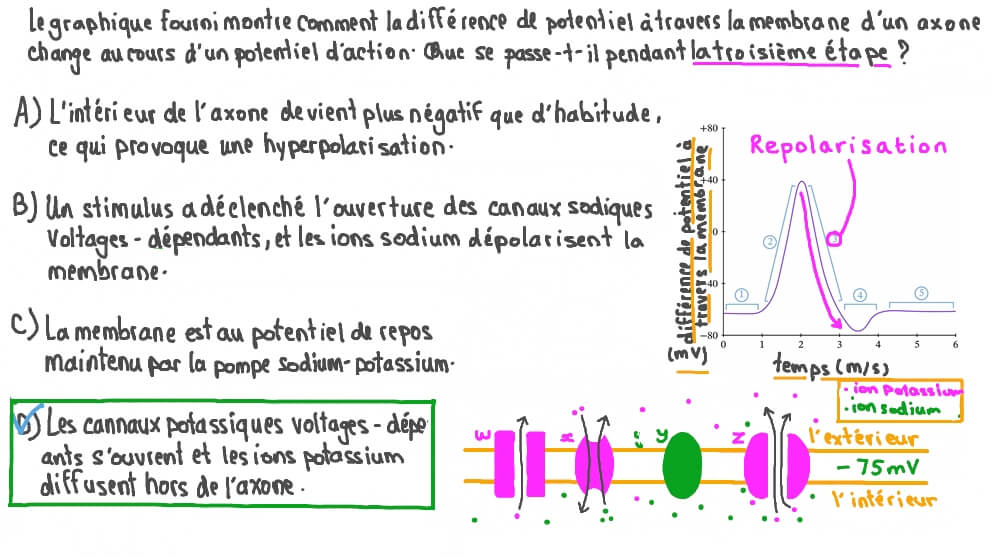 Le graphique fourni montre comment la différence de potentiel à travers la membrane d'un axone
change au cours d'un potentiel d'action. Que se passe-t-il pendant la troisième étape ?
A) L'intérieur de l'axone devient plus négatif que d'habitude,
ce qui provoque une hyperpolarisation.
B) Un stimulus a déclenché l'ouverture des canaux sodiques
Voltages-dépendants, et les ions sodium dépolarisent la
membrane.
C) La membrane est au potentiel de repos
maintenu par la pompe sodium-potassium.
D) Les cannaux potassiques voltages-dépe
ants s'ouvrent et les ions potassium
diffusent hors de l'axone.
différence de potentiel à
travers la membrane
(mV)
+80
+40
0
40
-80
Repolarisation
1
2
3
4
5
0 1 2 3 4 5 6
temps (m/s)
ion potassium
ion sodium
w x y z
l'extérieur
-75mV
l'intérieur